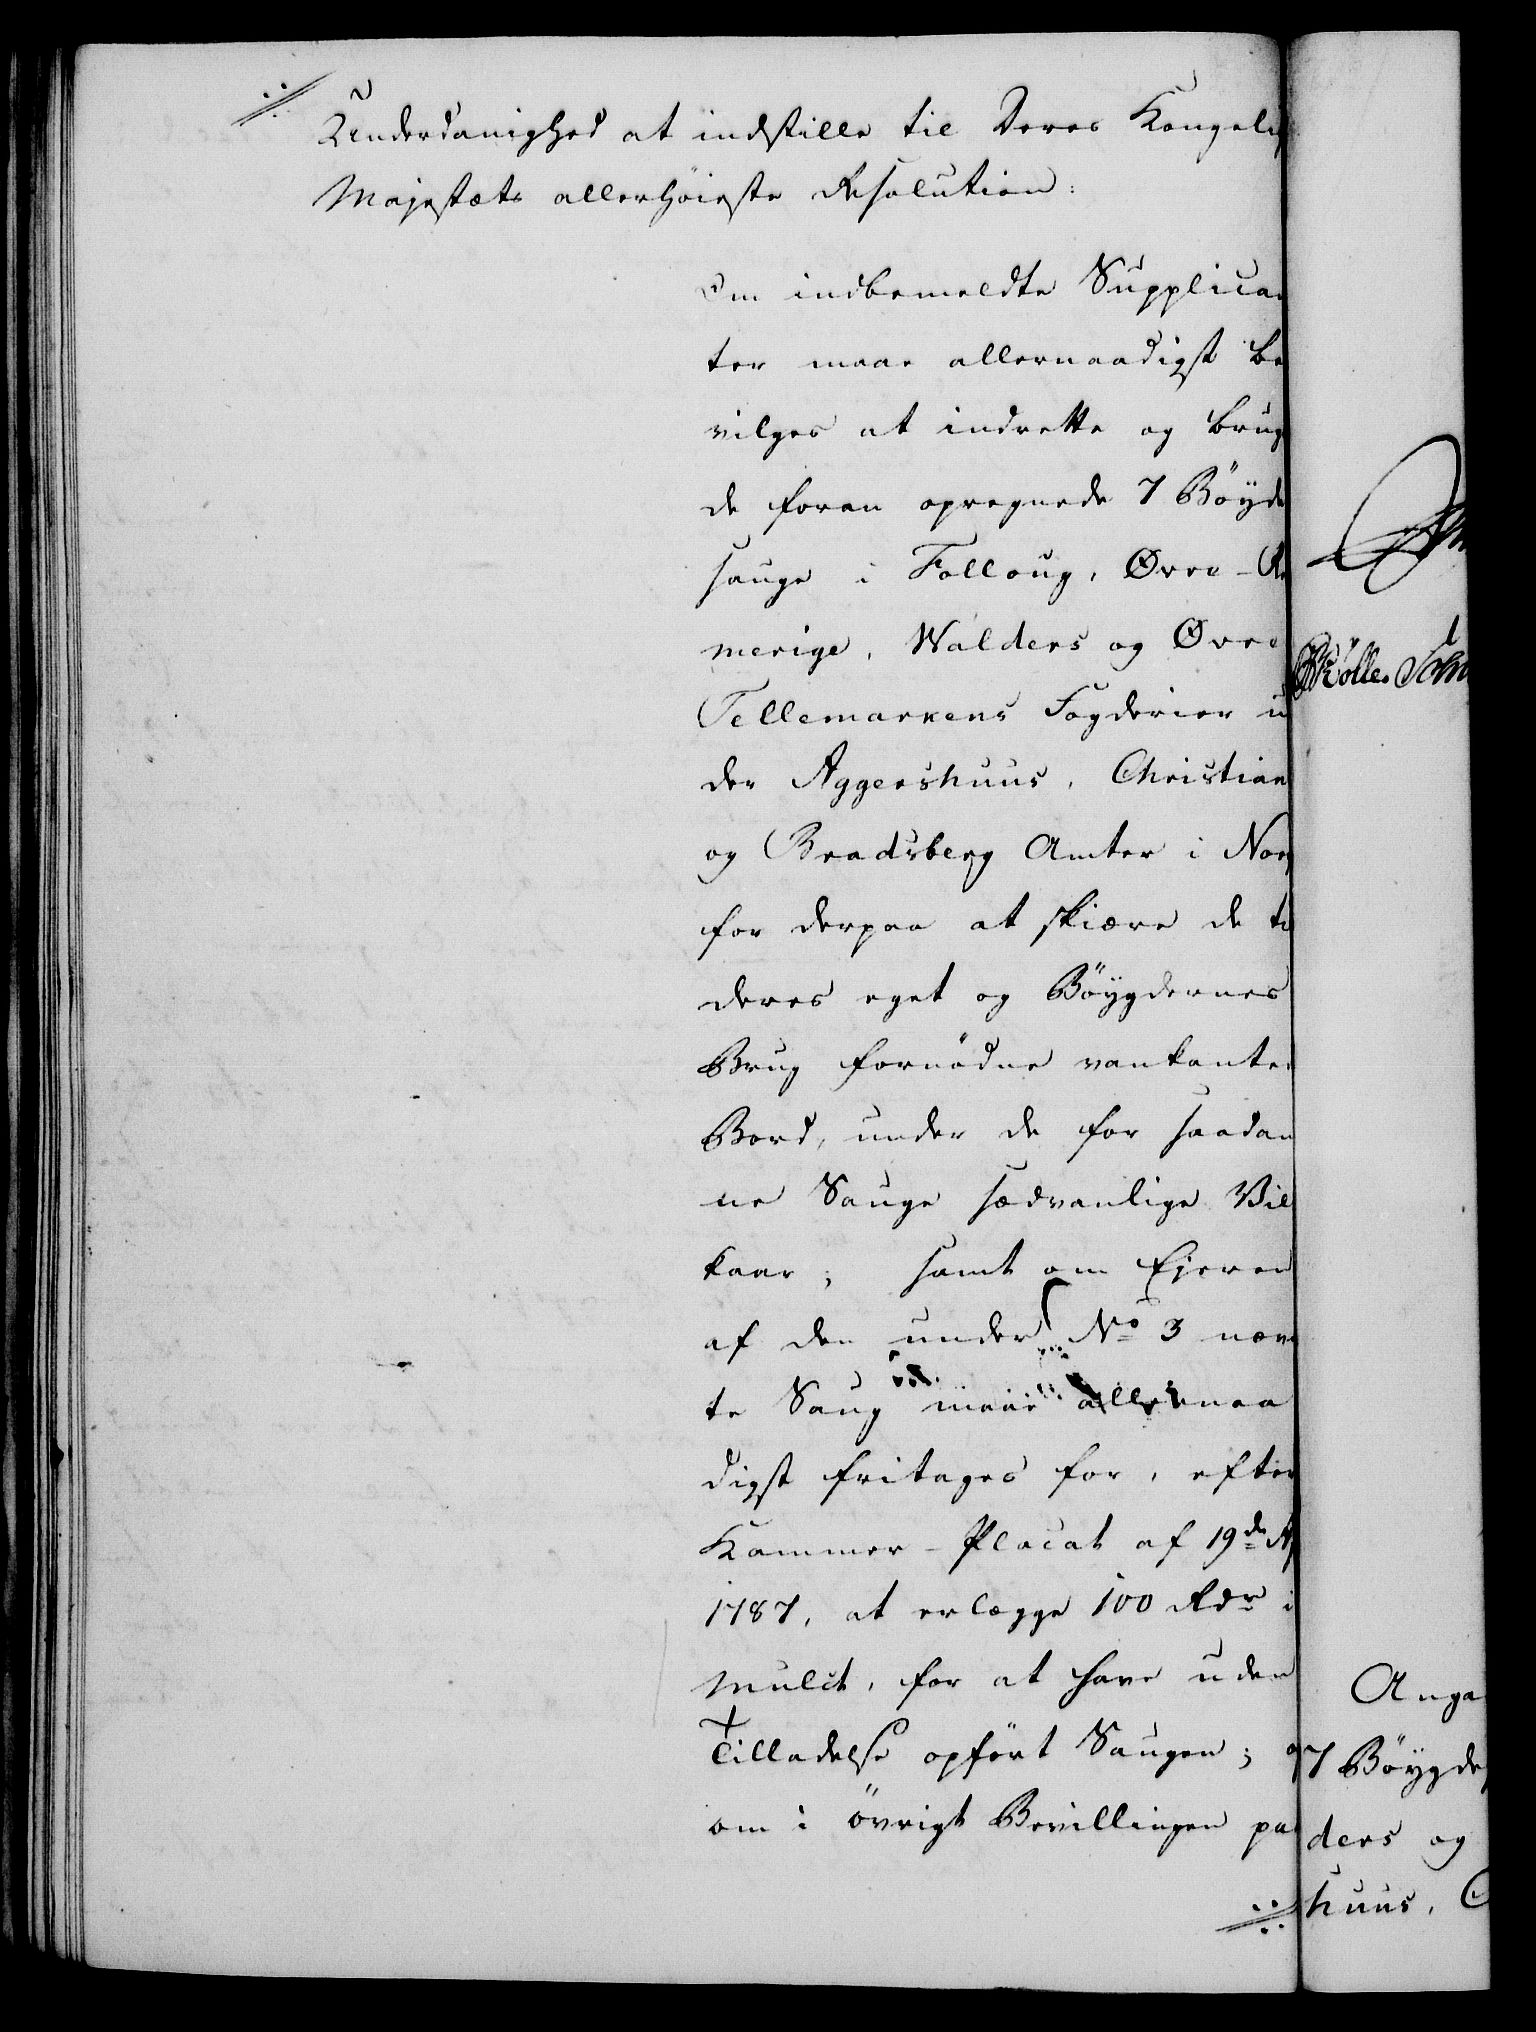 Underdanighed at indstille til Deres Kongeli
Majestæts allerhöieste Resolution:
Om indbemeldte Supplican
ter maae allernaadigst be
vilges at indrette og brug
de foran opregnede 7 Böyde
sauge i Folloug, Øvre-Ro
merige, Walders og Øvre
Tellemarkens Fogderier u
der Aggershuus, Christian
og Bradsberg Amter i Nor
for derpaa at skiære de ti
deres eget og Böygdernes
Brug fornödne vankante
Bord, under de for saadan
ne Sauge sædvanlige Vil
kaar; samt om Ejeren
af den under No 3 næv
te Saug maae allernaa
digst fritages for, efter
Kammer-Placat af 19de A
1787, at erlægge 100 Rdr i
Mulct, for at have uden
Tilladelse opfört Saugen; o
om i övrigt Bevillingen pa
Kölle. Sch
Anga
7 Böygde
ders og
huus, C